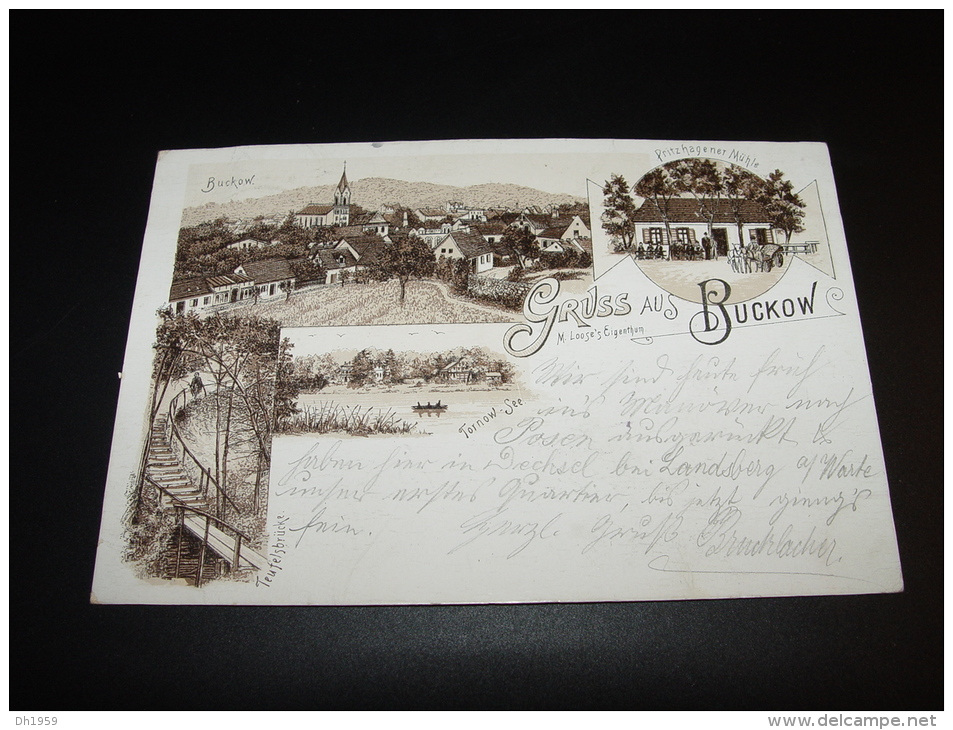 Buckow.
Pritzhagener Mühle
GRUSS AUS BUCKOW
M. Loose's Eigenthum.
Tornow-See
Teufelsbrücke.
Wir sind heute früh
ins Manöver nach
Posen ausgerückt &
haben hier in Dechsel bei Landsberg a/Warte
unser erstes Quartier, bis jetzt gieng's
fein. Herzl. Gruß
Bruchlacher.
Dh1959
www.delcampe.net